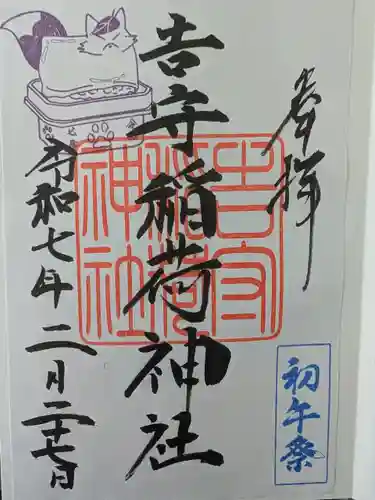 奉拝
吉守稲荷神社
令和七年二月二十七日
吉守
稲荷
神社
初午祭